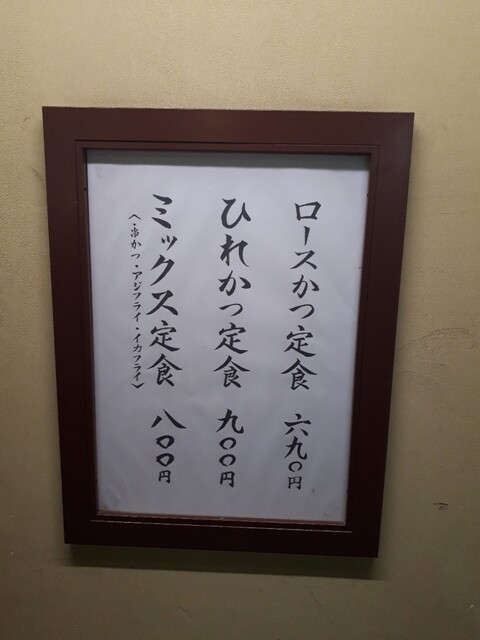 ロースかつ定食 六九〇円
ひれかつ定食 九〇〇円
ミックス定食 八〇〇円
〈・串かつ・アジフライ・イカフライ〉